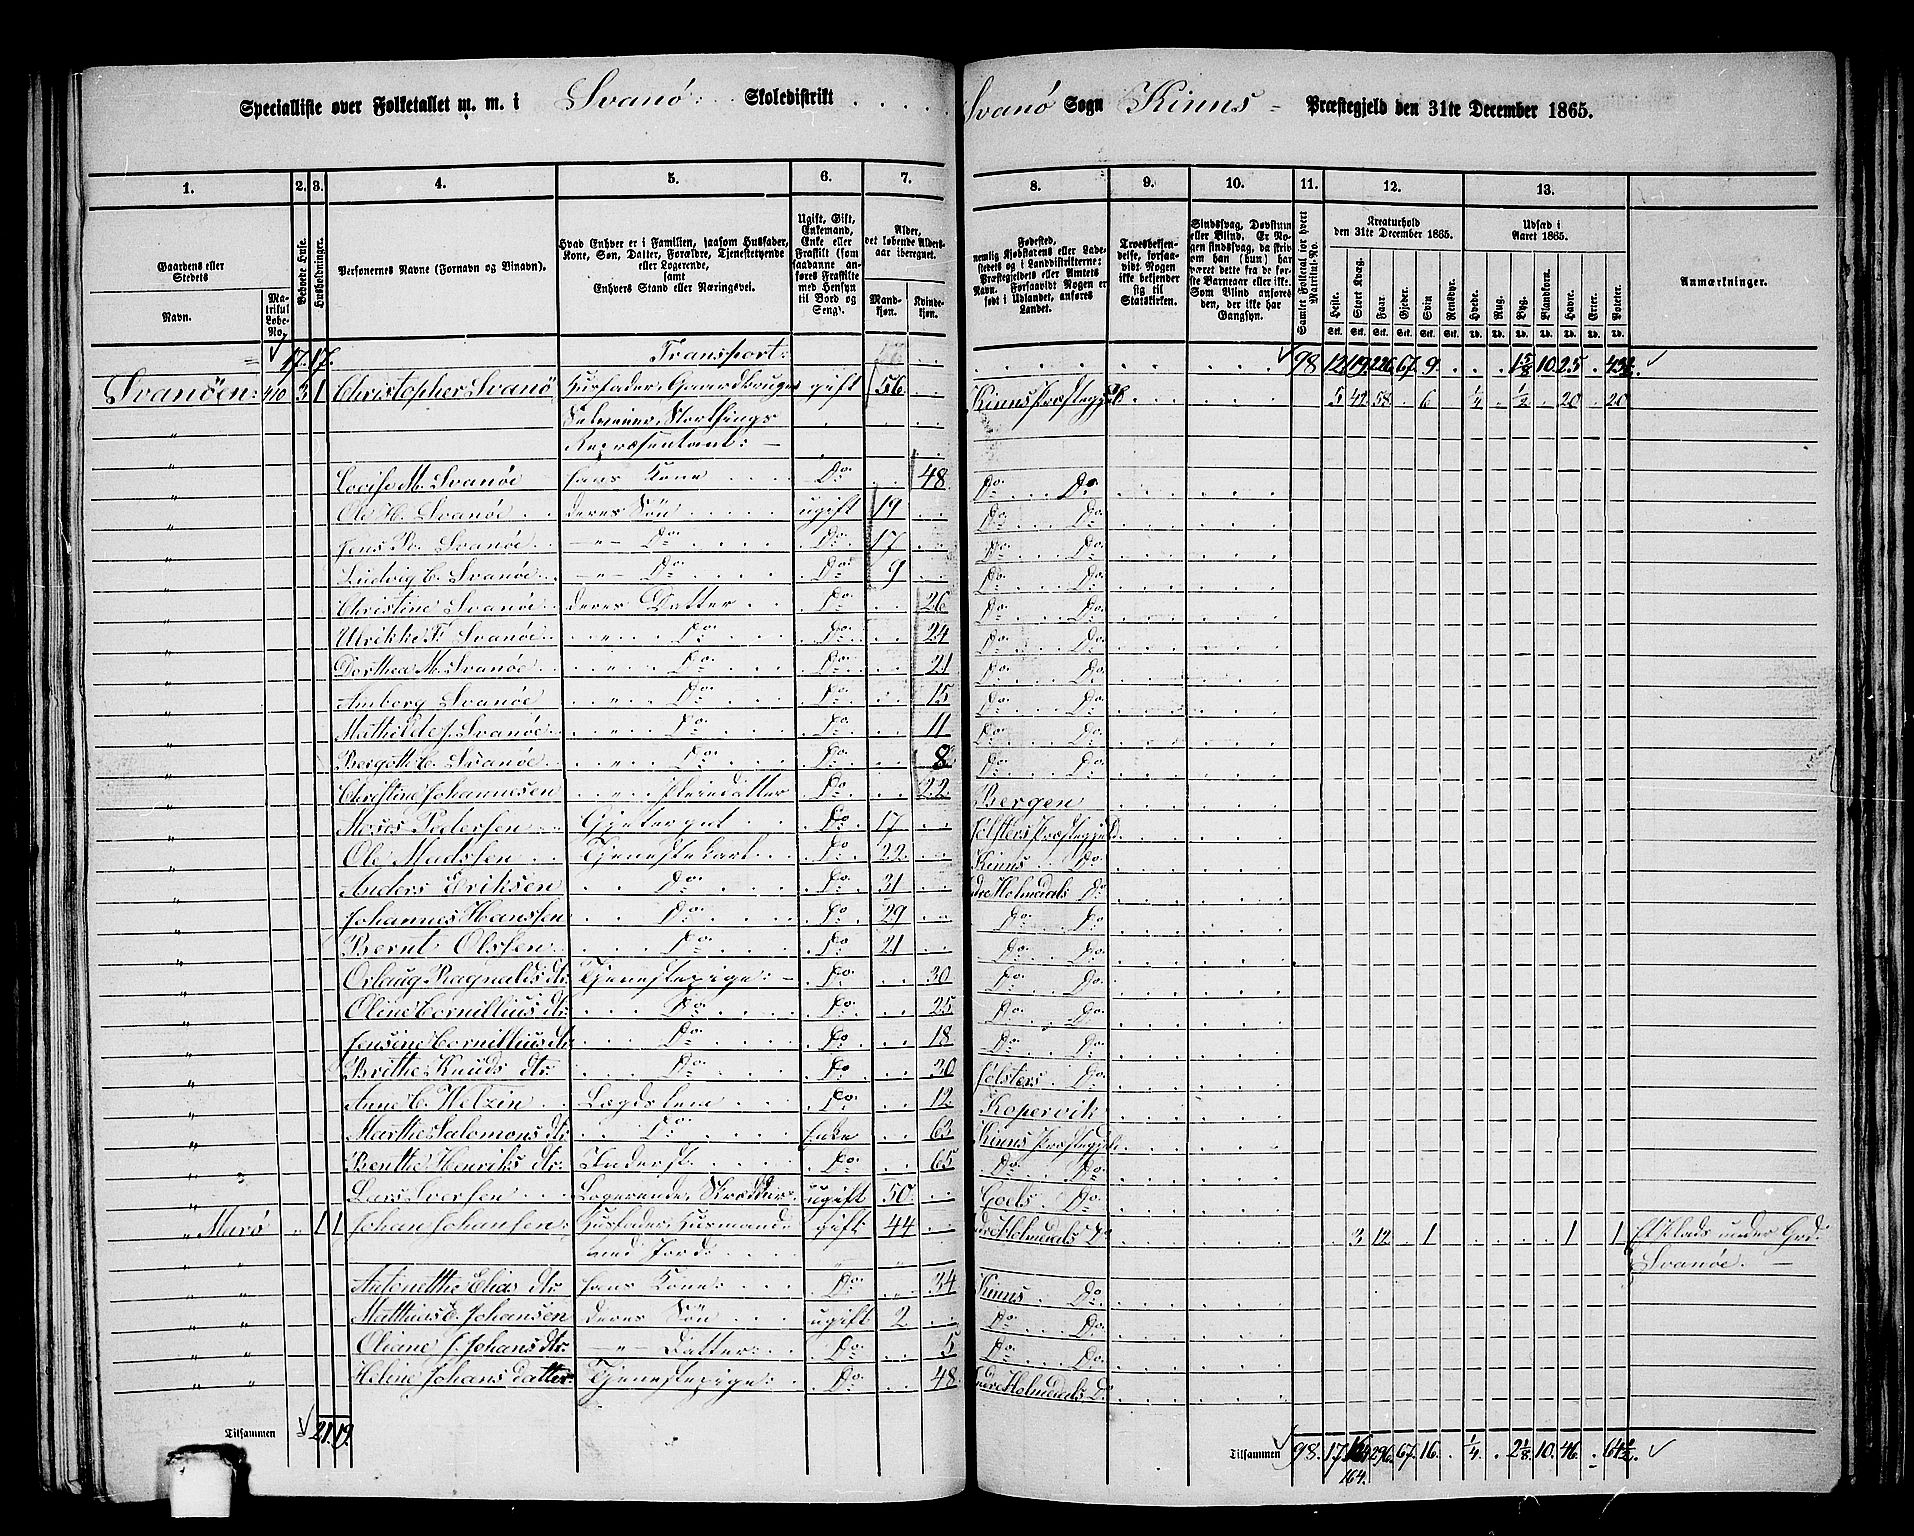 Specialliste over Folketallet m. m. i Svanø: Skoledistrikt . . . . Svanø Sogn Kinns = Præstegjeld den 31te December 1865.
1. 2. 3. 4. 5. 6. 7. 8. 9. 10. 11. 12. 13.
Gaardens eller Stedets
Navn.
Matrikul Løbe-No.
Beboede Huse.
Husholdninger.
Personernes Navne (Fornavn og Tilnavn).
Hvad Enhver er i Familien, saasom Husfader, Kone, Søn, Datter, Forældre, Tjenestetyende eller Logerende, samt Enhvers Stand eller Næringsvei.
Ugift, Gift, Enkemand, Enke eller Fraskilt (som saadanne anføres Fraskilte med Hensyn til Bord og Seng).
Alder, det løbende Aldersaar iberegnet.
Mandkjøn. Kvindekjøn.
Fødested, nemlig Kjøbstadens eller Ladestedets og i Landdistrikterne: Præstegjeldets eller Amtets Navn. Forsaavidt Nogen er født i Udlandet, anføres Landet.
Troesbekjendelse, forsaavidt Nogen ikke bekjender sig til Statskirken.
Sindssvag, Døvstum eller Blind. Er Nogen sindssvag, da skrives om han (hun) har været dette fra de første Barneaar eller ikke. Som Blind anføres den, der ikke har Gangsyn.
Samlet Folketal for hvert Matrikul-No.
Kreaturhold den 31te December 1865.
Heste. Stort Kvæg. Faar. Gjeder. Svin. Rensdyr.
Udsæd i Aaret 1865.
Hvede. Rug. Byg. Blandkorn. Havre. Erter. Poteter.
Anmærkninger.
17. 17. Transport: 98 12 119 226 67. 9 1 5/8 10 25 43 1/2
Svanøen: 3 1 Christopher Svanø Husfader, Gaardbruger gift 56 Kinns Præstegj. 5 42 58 6 1/4 1/2 20 20
Selveier, Storthings
Repræsentant: —
" Lovise M. Svanøe hans Kone Do. 48 Do. Do.
" Ole H. Svanøe deres Søn ugift 19 Do. Do.
" Jens Svanøe —"— Do. Do. 17 Do. Do.
" Ludvig C. Svanøe —"— Do. Do. 9 Do. Do.
" Christine Svanøe deres Datter Do. 26 Do. Do.
" Ulrikke F. Svanøe " Do. Do. 24 Do. Do.
" Dorthea M. Svanøe " Do. Do. 21 Do. Do.
" Amborg Svanøe " Do. Do. 15 Do. Do.
" Mathilde J. Svanøe " Do. Do. 11 Do. Do.
" Bergitte C. Svanøe " Do. Do. 8 Do. Do.
" Christine Johannesen " Pleiedatter Do. 22. Bergen
" Moses Pedersen Gjetergut Do. 17 Jølsters Præstegjeld.
" Ole Madssen Tjenestekarl Do. 22. Kinns Do.
" Anders Eriksen Do. Do. 31 Indre Holmedals Do.
" Johannes Hanssen Do. Do. 29 Do. Do.
" Bernt Olssen Do. Do. 21 Do. Do.
" Orlaug Ragnalds dtr: Tjenestepige: — Do. 30 Do. Do.
" Oline Cornillius dtr: Do. Do. 25 Do. Do.
" Jensine Cornillius dtr Do. Do. 18 Do. Do.
" Brithe Knuds dtr: Do. Do. 30 Jølsters Do.
" Anne C. Welzin Lægdslem Do. 12 Kopervik
" Marthe Salomons dtr: Do. Enke 63 Kinns Præstegjeld
" Benthe Henriks dtr: Inderst Do. 65 Do. Do.
" Lars Iversen Logerende, Skrædder ugift 50. Do.
" Marø " 1 1 Johan Johansen: Husfader, Husmand gift 44 Indre Holmedals Do 3 12 1 1 1 Et Plads under Grd:
med Jord: Svanøe. —
" " Antonette Elias dtr: hans Kone: Do. 34 Kinns Do.
" " Matthias E. Johansen deres Søn ugift 2 Do. Do.
" " Oliane J. Johans dtr: —"— Datter: Do. 5 Do. Do.
" " Heline Johans datter: Tjenestepige: Do. 48. Indre Holmedals Do
Tilsammen 21. 19. Tilsammen 98. 17. 296. 67. 16. 1/4 2 1/8 10. 46 64 1/2
164.